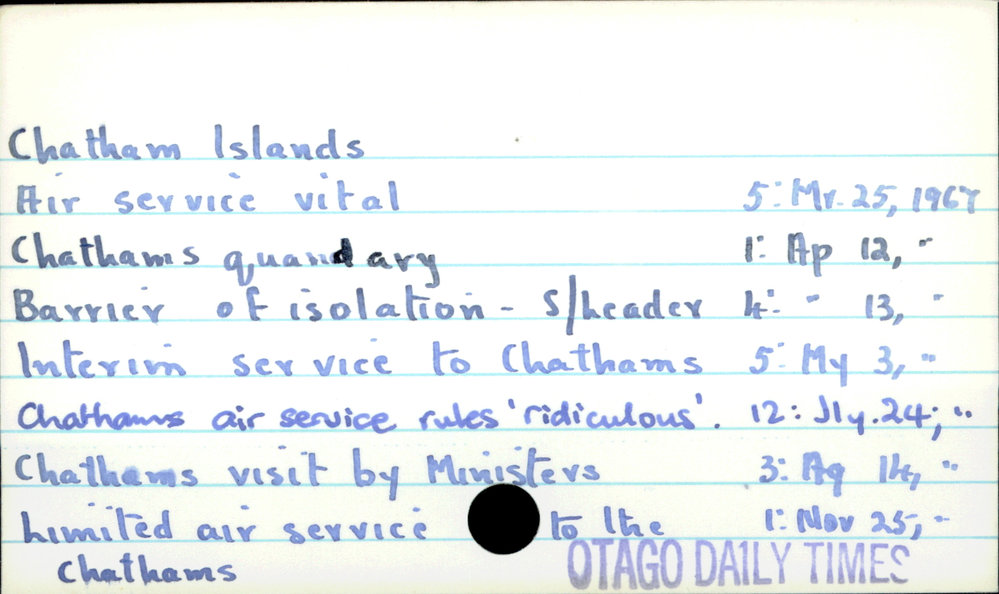 Chatham Islands
Air service vital 5: Mr. 25, 1967
Chathams quandary 1: Ap 12, "
Barrier of isolation - S/header 4: " 13, "
Interim service to Chathams 5: My 3, "
Chathams air service rules 'ridiculous'. 12: Jly. 24, "
Chathams visit by Ministers 3: Ag 14, "
Limited air service to the 1: Nov 25, "
Chathams
OTAGO DAILY TIMES